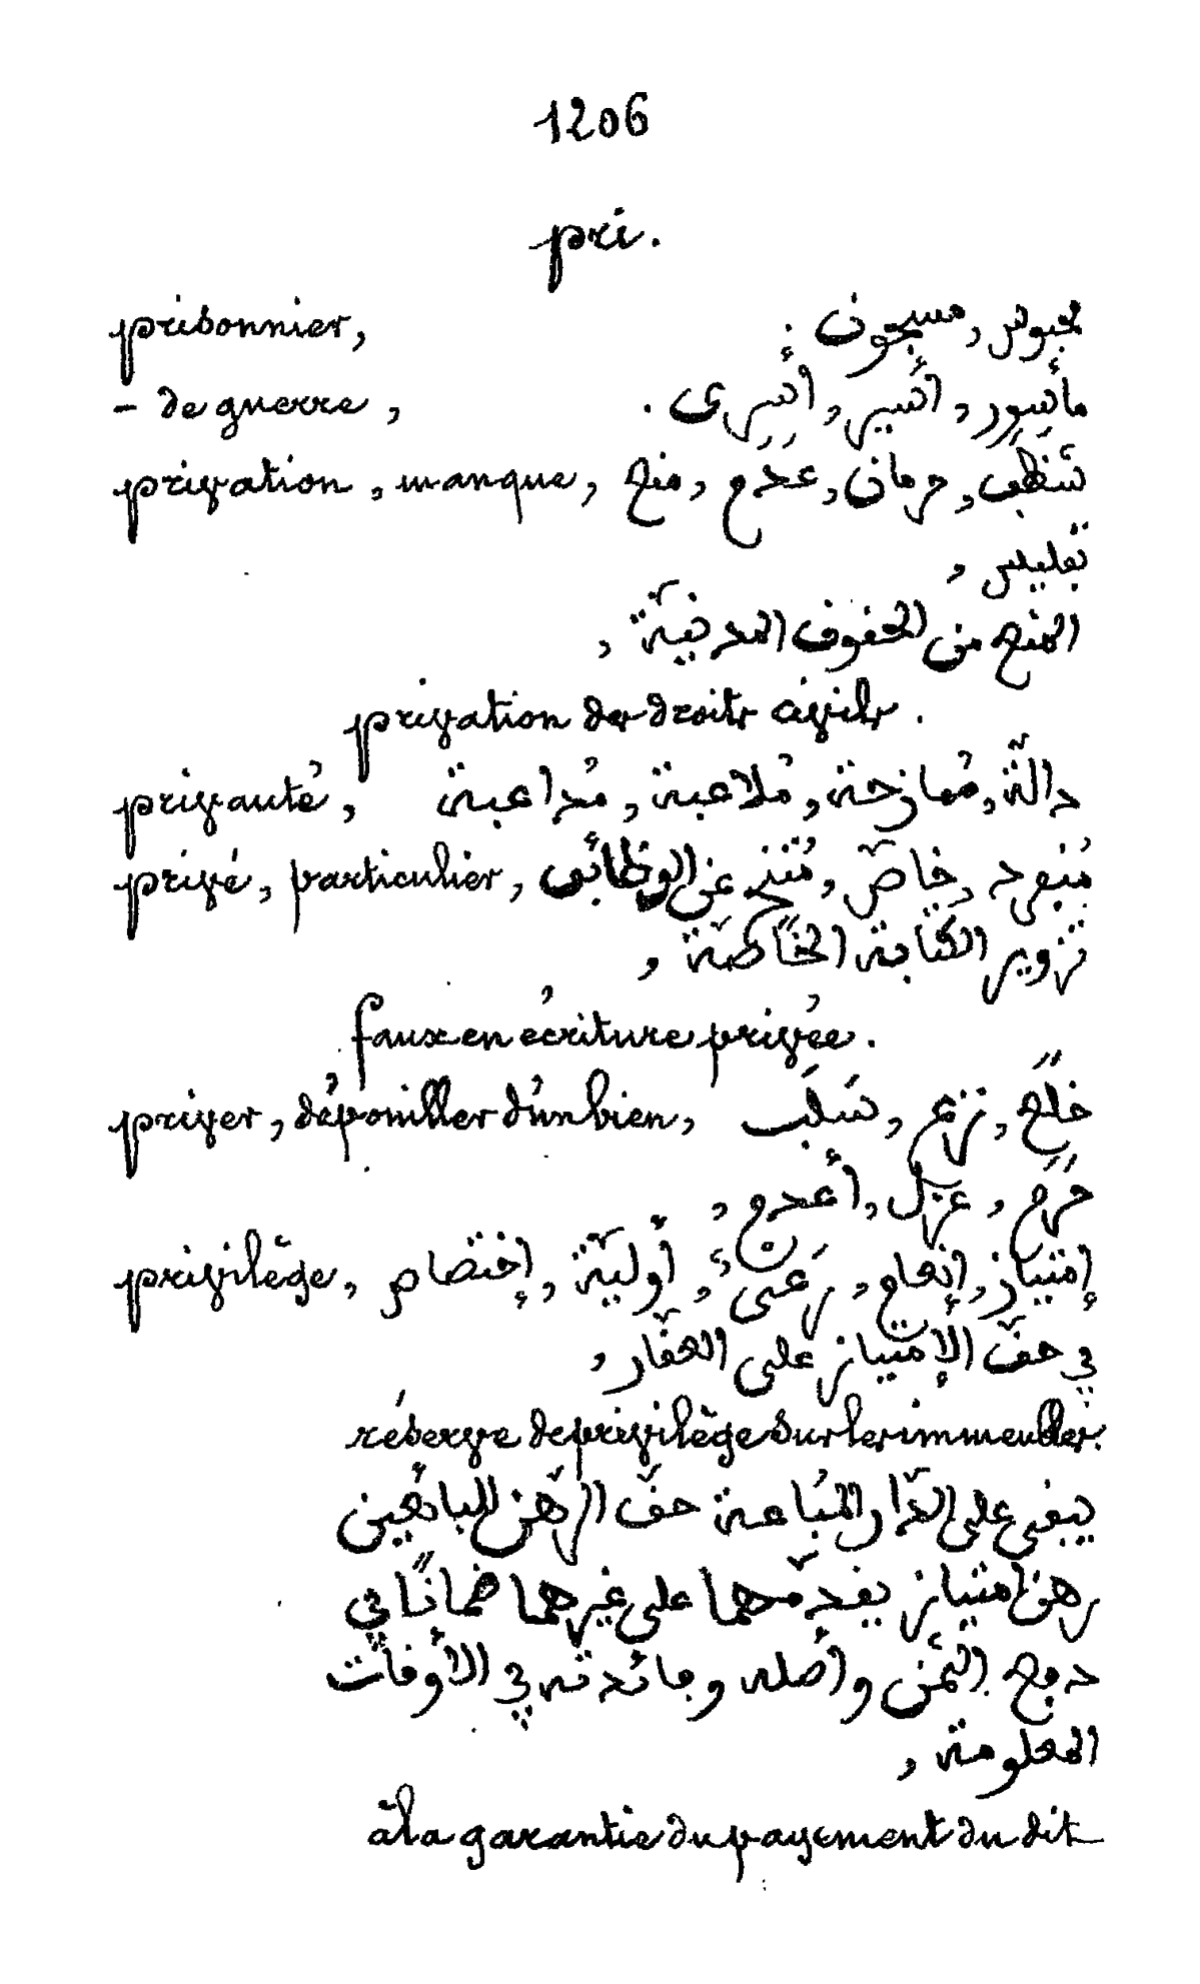 1206
pri.
prisonnier, محبوس, مسجون.
- de guerre, مأسور, أسير, أسرى.
privation, manque, شظف, حرمان, عدم, منع,
تفليس,
المنع من الحقوق المدنيّة,
privation des droits civils.
privauté, دالّة, مُمازحة, مُلاعبة, مُداعبة
privé, particulier, مُنفرد, خاصّ, مُتنحٍّ عن الوظائف
تزوير الكتابة الخاصّة,
faux en écriture privée.
priver, dépouiller d'un bien, خلَع, نزع, سَلَب
حَرَم, عزل, أعدم,
privilège, إمتياز, إنعام, رَعْى, أوليّة, إختصاص
في حقّ الإمتياز على العقار,
réserve de privilège sur les immeubles.
يبقى على الدّار المُباعة حقّ الرّهن للبائعين
رهن امتياز يقدّمهما على غيرهما ضمانًا في
دفع الثّمن وأصله وفائدته في الأوقات
المعلومة,
à la garantie du payement du dit